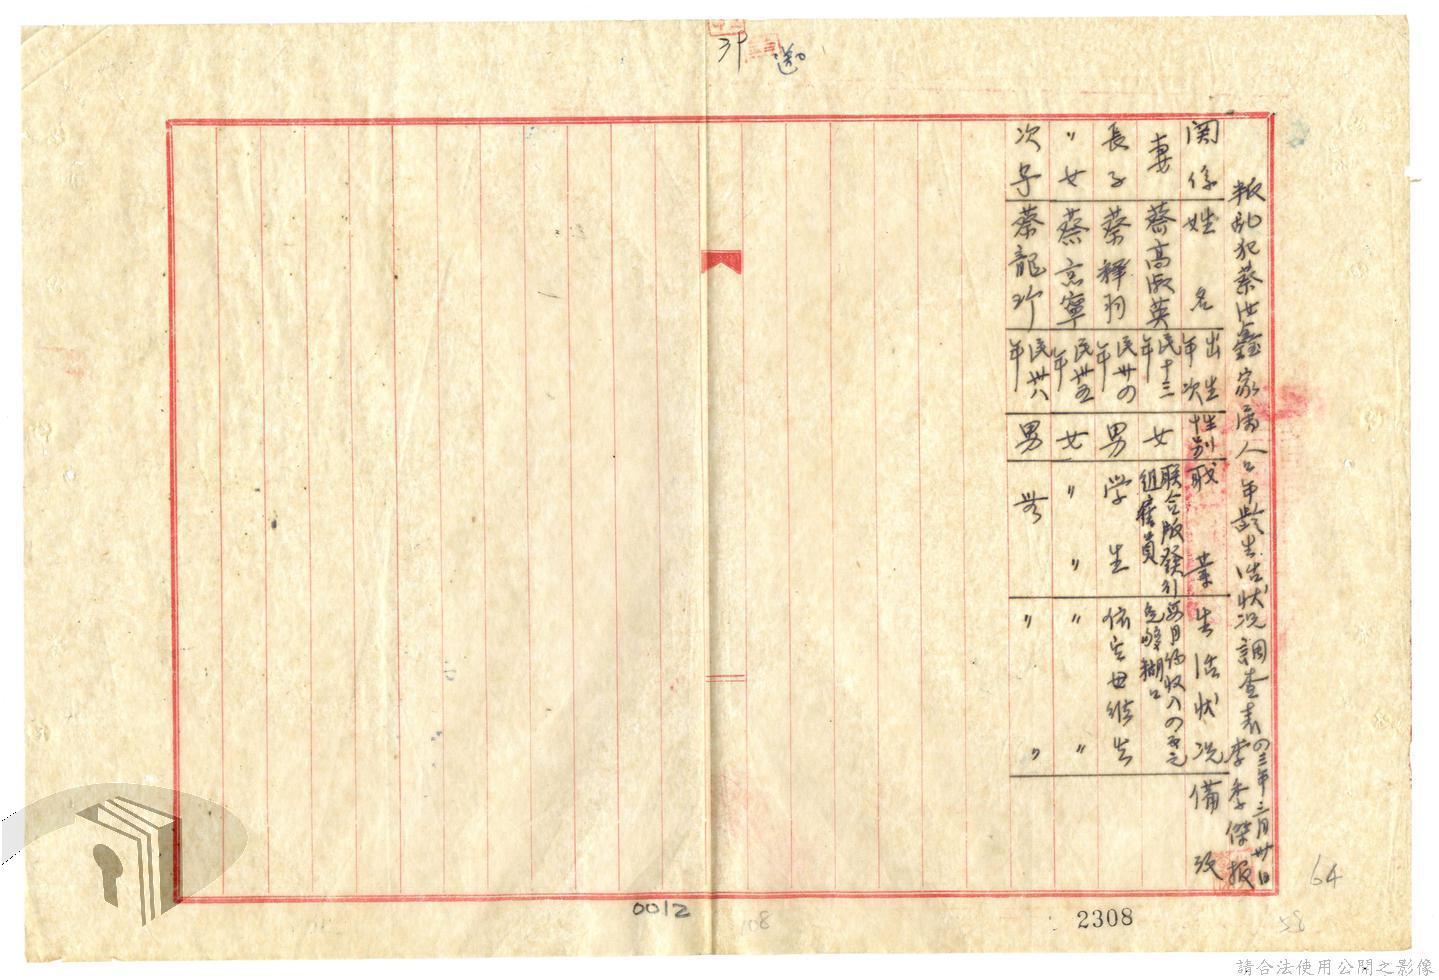 叛乱犯蔡汝鑫家屬人口年齡生活狀况調查表
四三年三月卅日
李季傑報
関係 姓名 出生年次 性别 職業 生活狀况 備攷
妻 蔡高淑英 民十三年 女 联合版發行組雇員 每月收入四百元 免夠糊口
長子 蔡輝羽 民卅四年 男 学生 依靠母維生
〃女 蔡京寧 民卅五年 女 〃〃 〃〃
次子 蔡龍 民卅八年 男 無 〃〃
0012
108
2308
64
58
請合法使用公開之影像